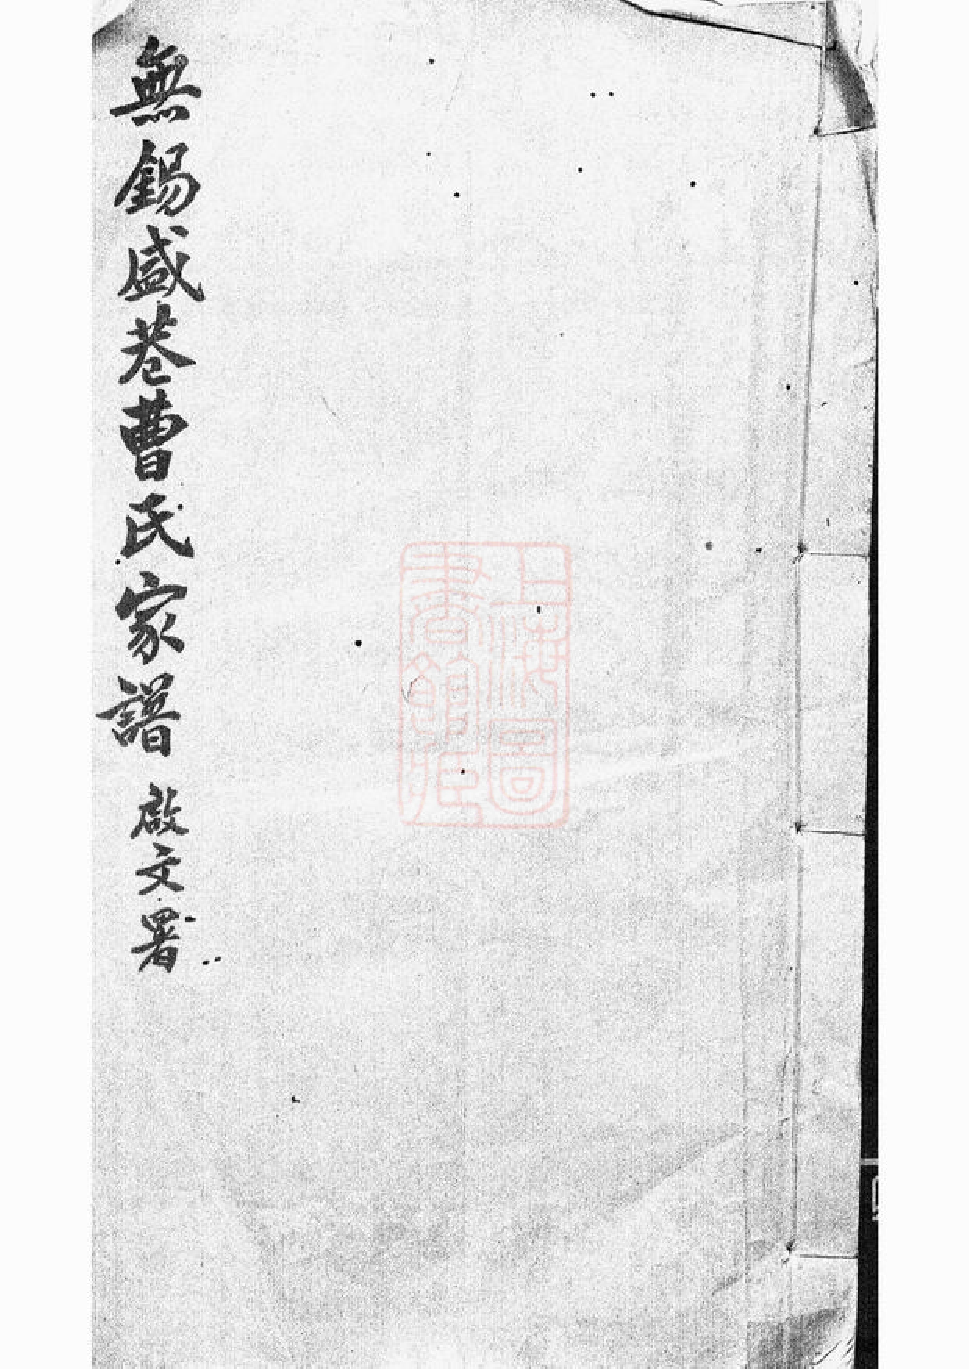 無錫盛巷曹氏家譜 啟文署
上海圖
書館藏